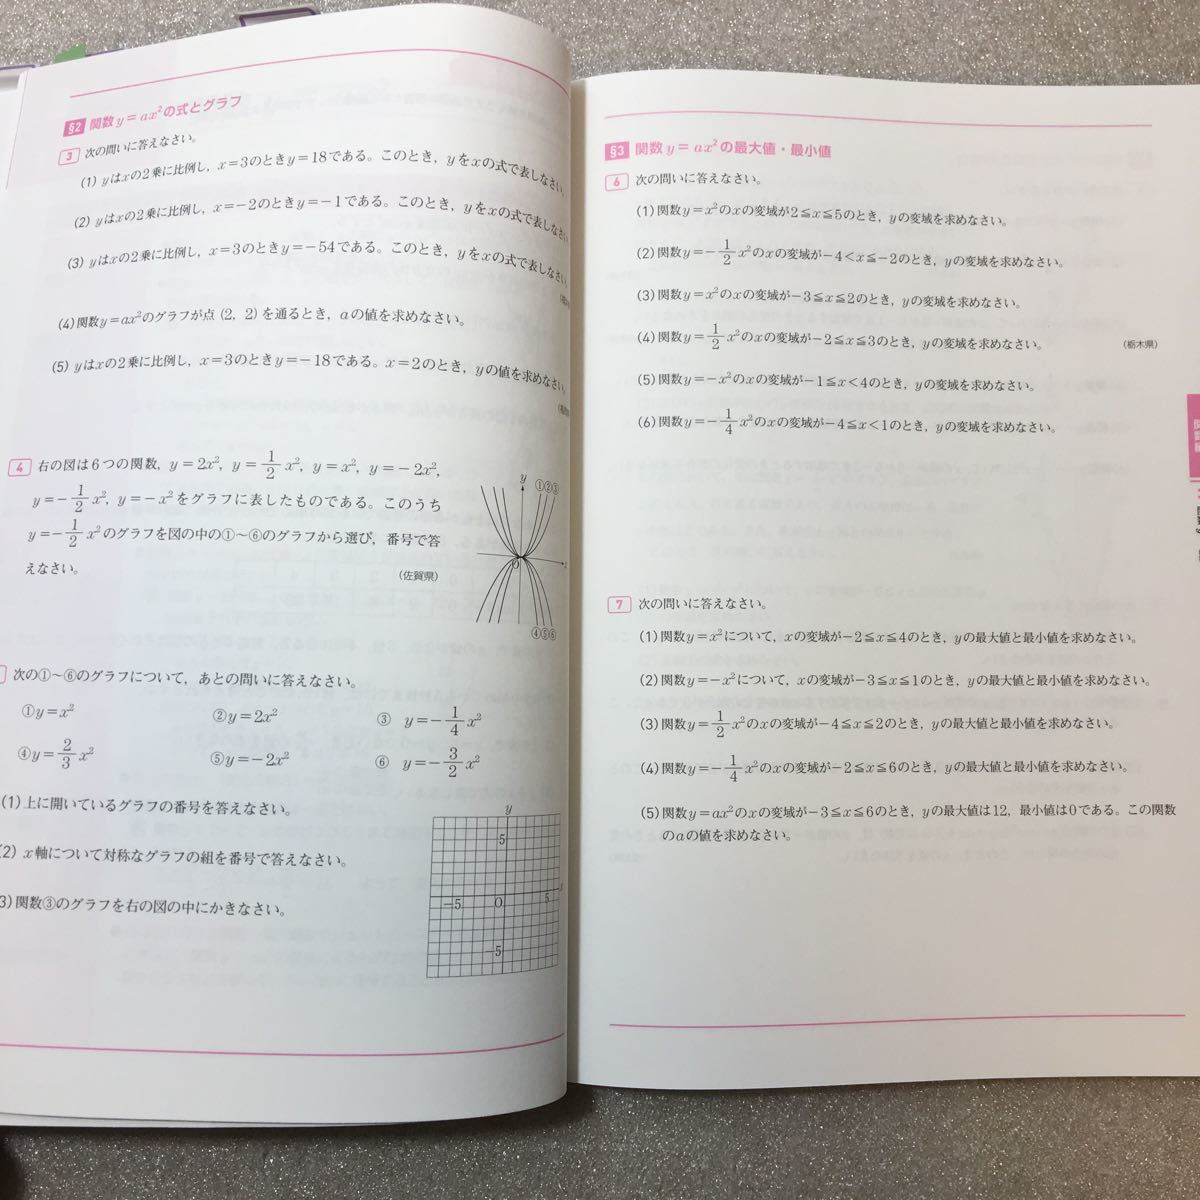 §2 関数y=ax²の式とグラフ
3 次の問いに答えなさい。
(1) yはxの2乗に比例し，x=3のときy=18である。このとき，yをxの式で表しなさい。
(2) yはxの2乗に比例し，x=-2のときy=-1である。このとき，yをxの式で表しなさい
(3) yはxの2乗に比例し，x=3のときy=-54である。このとき，yをxの式で表しなさい。
(4) 関数y=ax²のグラフが点(2, 2)を通るとき，aの値を求めなさい。
(5) yはxの2乗に比例し，x=3のときy=-18である。x=2のとき，yの値を求めなさい。
4 右の図は6つの関数，y=2x²，y=1/2 x²，y=x²，y=-2x²，
y=-1/2 x²，y=-x²をグラフに表したものである。このうち
y=-1/2 x²のグラフを図の中の①〜⑥のグラフから選び，番号で答
えなさい。 (佐賀県)
y
①②③
O
x
④⑤⑥
次の①〜⑥のグラフについて，あとの問いに答えなさい。
①y=x² ②y=2x² ③ y=-1/4 x²
④y=2/3 x² ⑤y=-2x² ⑥ y=-3/2 x²
(1) 上に開いているグラフの番号を答えなさい。
(2) x軸について対称なグラフの組を番号で答えなさい。
3) 関数③のグラフを右の図の中にかきなさい。
y
5
x
-5 O 5
-5
§3 関数y=ax²の最大値・最小値
6 次の問いに答えなさい。
(1) 関数y=x²のxの変域が2≦x≦5のとき，yの変域を求めなさい。
(2) 関数y=-1/2 x²のxの変域が-4<x≦-2のとき，yの変域を求めなさい。
(3) 関数y=x²のxの変域が-3≦x≦2のとき，yの変域を求めなさい。
(4) 関数y=1/2 x²のxの変域が-2≦x≦3のとき，yの変域を求めなさい。 (栃木県)
(5) 関数y=-x²のxの変域が-1≦x<4のとき，yの変域を求めなさい。
(6) 関数y=-1/4 x²のxの変域が-4≦x<1のとき，yの変域を求めなさい。
7 次の問いに答えなさい。
(1) 関数y=x²について，xの変域が-2≦x≦4のとき，yの最大値と最小値を求めなさい。
(2) 関数y=-x²について，xの変域が-3≦x≦1のとき，yの最大値と最小値を求めなさい。
(3) 関数y=1/2 x²のxの変域が-4≦x≦2のとき，yの最大値と最小値を求めなさい。
(4) 関数y=-1/4 x²のxの変域が-2≦x≦6のとき，yの最大値と最小値を求めなさい。
(5) 関数y=ax²のxの変域が-3≦x≦6のとき，yの最大値は12，最小値は0である。この関数
のaの値を求めなさい。
関数編